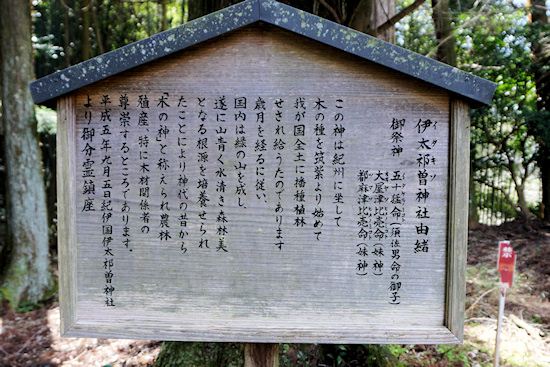 伊太祁曽神社由緒
イタキソ
御祭神 五十猛命(須佐男命の御子)
大屋津比売命(妹神)
都麻津比売命(妹神)
この神は紀州に坐して
木の種を筑紫より始めて
我が国全土に播種植林
せされ給うたのであります
歳月を経るに従い、
国内は緑の山を成し
遂に山青く水清き森林美
となる根源を培養せられ
たことにより神代の昔から
「木の神」と称えられ農林
殖産、特に木材関係者の
尊崇するところであります。
平成五年九月五日紀伊国伊太祁曽神社
より御分霊鎮座
禁